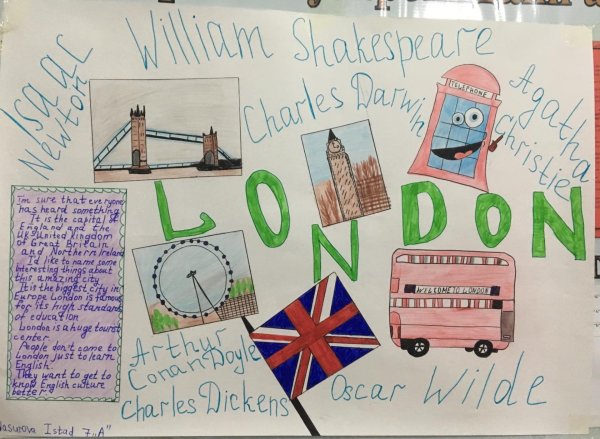 William Shakespeare
Isaac
Newton
Charles Darwin
TELEPHONE
Agatha
Christie
LONDON
I'm sure that everyone
has heard something
It is the capital of
England and the
UK-United Kingdom
of Great Britain
and Northern Ireland
I'd like to name some
interesting things about
this amazing city
It is the biggest city in
Europe London is famous
for its high standards
of education
London is a huge tourist
center
People don't come to
London just to learn
English.
They want to get to
know English culture
better
WELCOME TO LONDON
Arthur
Conan Doyle
Charles Dickens
Oscar Wilde
Istad 7 „A"